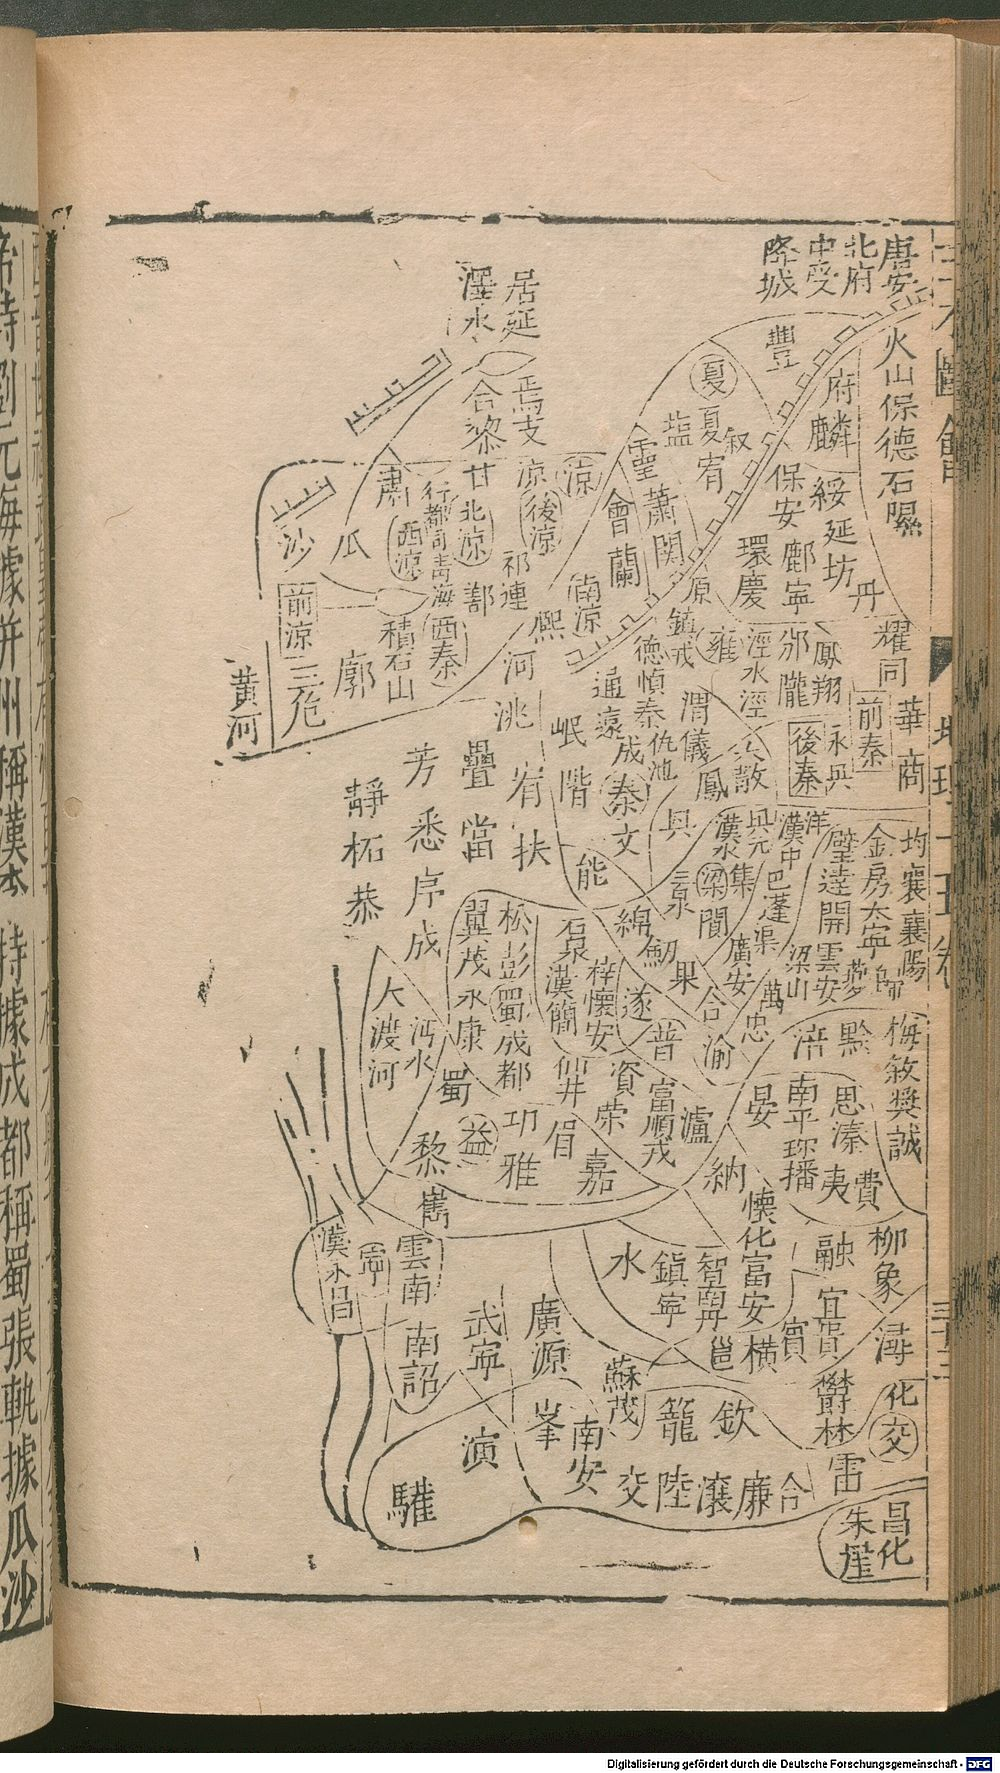 唐安
北府
中受
降城
火山保德石隰
豐
府麟
夏
夏宥
鹽
靈
保安
綏延坊
丹
鄜寧
環慶
會蘭
蕭関
原
鎮戎
居延
澤水
焉支
合黎
甘
北凉
凉
後凉
凉
肅
行都司
西凉
青海
西秦
瓜
沙
前凉
三危
鄯
祁連
南凉
熙河洮
積石山
廓
黄河
耀同
華商
前秦
鳳翔
永興
後秦
邠隴
涇水
涇
雍
渭儀
鳳
德慎秦
仇池
通遠
成
秦
文
岷階
疊當
宕扶
芳悉
成
靜柘恭
能
興
三泉
興元
漢水
梁
集
閬
洋
漢中
巴蓬渠
廣安
均襄襄陽
金房太寧歸
夔
璧達開雲安
梁山
萬忠
綿
劒
果
合渝
遂
普
梓懷安
石泉
漢簡
仙井
松彭
蜀
成都
翼茂永康
蜀
沔水
大渡河
資榮
富順戎
瀘
納
嘉
眉
邛雅
益
黎
雟
涪
黔
思溱
夷
費
南平
播
晏
梅敘奬誠
懷化富安
橫
融
宜
柳象
潯
賓
貴
鬱林
化
交
雷
昌化
朱崖
水
鎮寧
邕
雲南
寧
漢永昌
南詔
武寧
廣源
蘇茂
籠
欽
峯
南安
演
驩
交陸瀼廉合
三才圖會
地理十五卷
三十二
特據成都稱蜀張軌據瓜沙
Digitalisierung gefördert durch die Deutsche Forschungsgemeinschaft - DFG